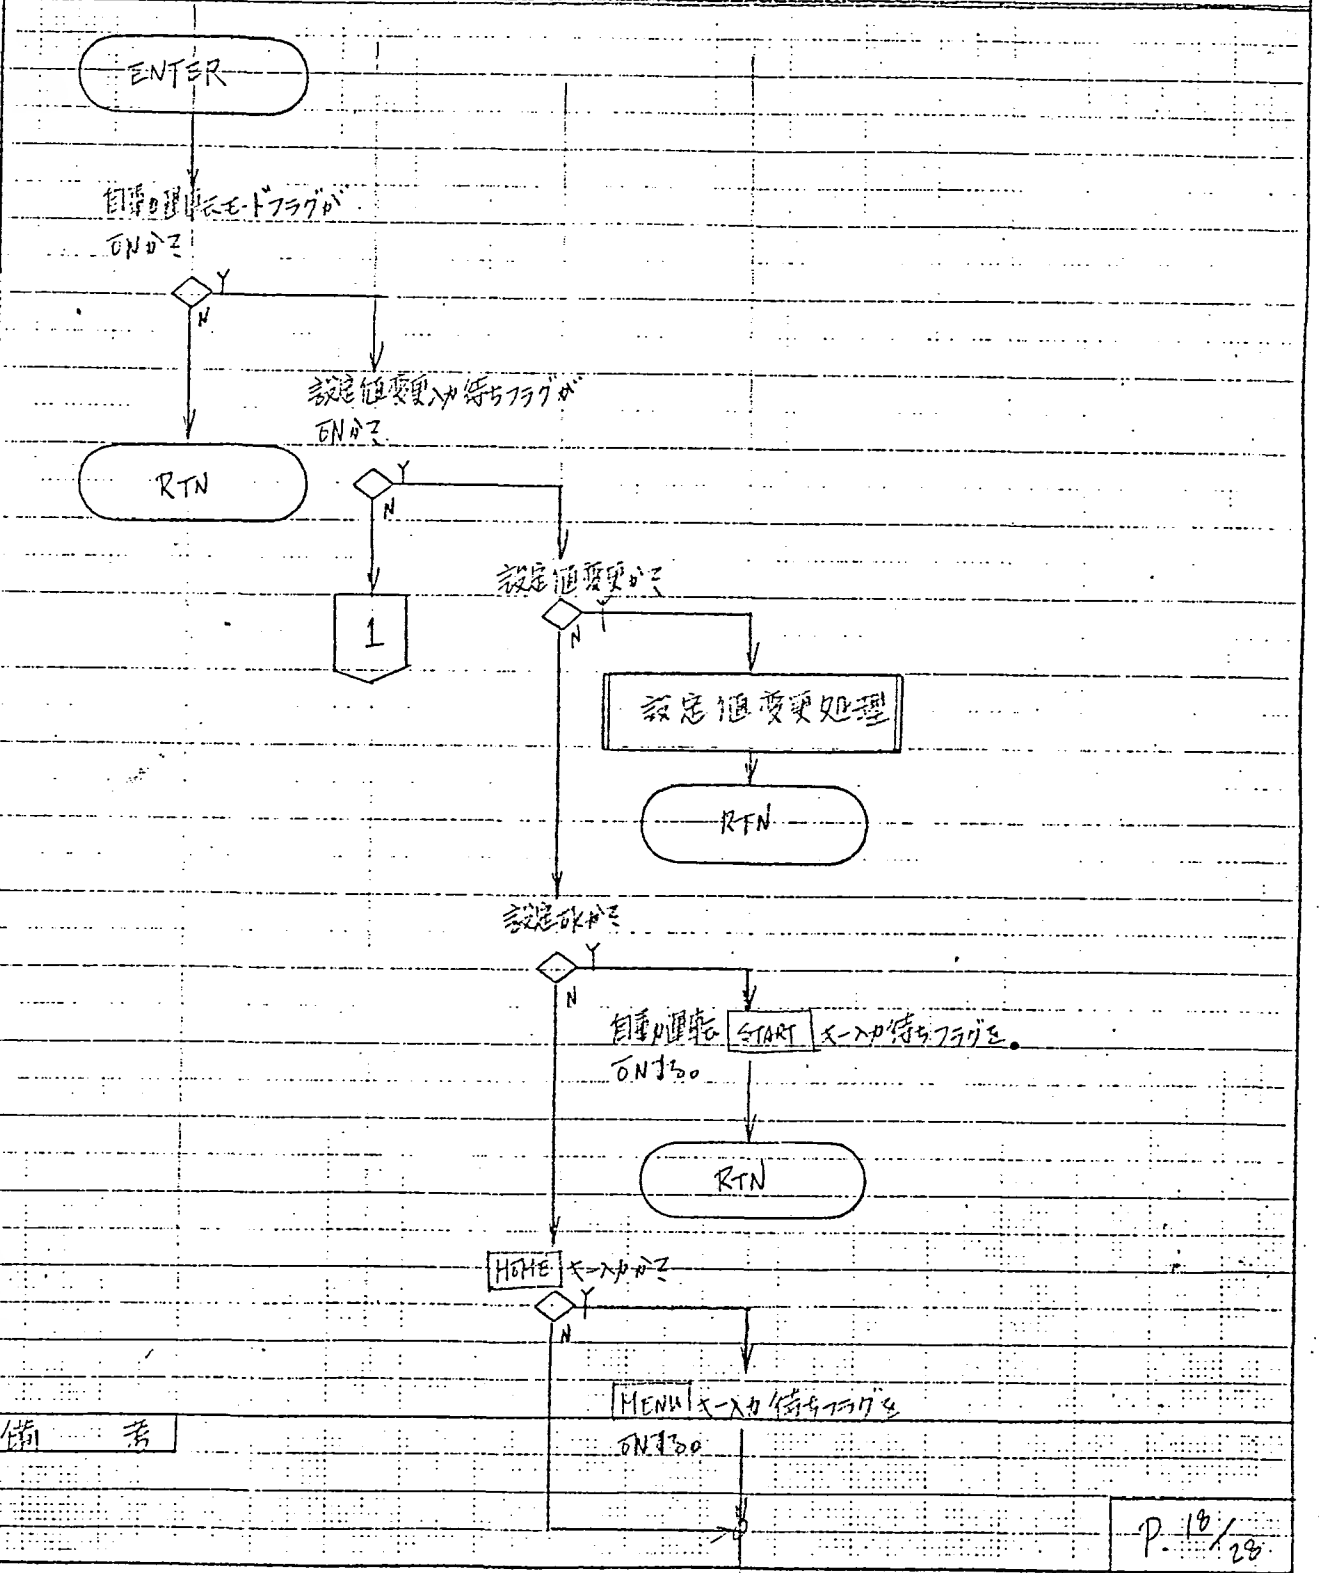 ENTER
自動運転モードフラグが
ONか?
Y
N
設定値変更入力待ちフラグが
ONか?
RTN
Y
N
設定値変更か?
1
Y
N
設定値変更処理
RTN
設定OKか?
Y
N
自動運転 START キー入力待ちフラグを
ONする。
RTN
HOME キー入力か?
Y
N
MENU キー入力待ちフラグを
ONする。
備 考
P. 18/28